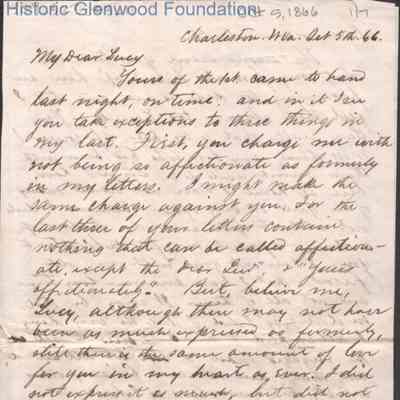 Historic Glenwood Foundation
Oct 9, 1866 1/7
Charleston. W.Va. Oct 5th. 66.
My Dear Lucy
Yours of the 1st. came to hand
last night, on time: and in it I see
you take exceptions to three things in
my last. First, you charge me with
not being so affectionate as formerly
in my letters. I might make the
same charge against you. For the
last three of your letters contain
nothing that can be called affection-
ate except the "Dear
affectionately." But, believe me,
Lucy, although there may not have
been as much expressed as formerly,
still there is the same amount of love
for you in my heart as ever. I did
not express it as much, but did not